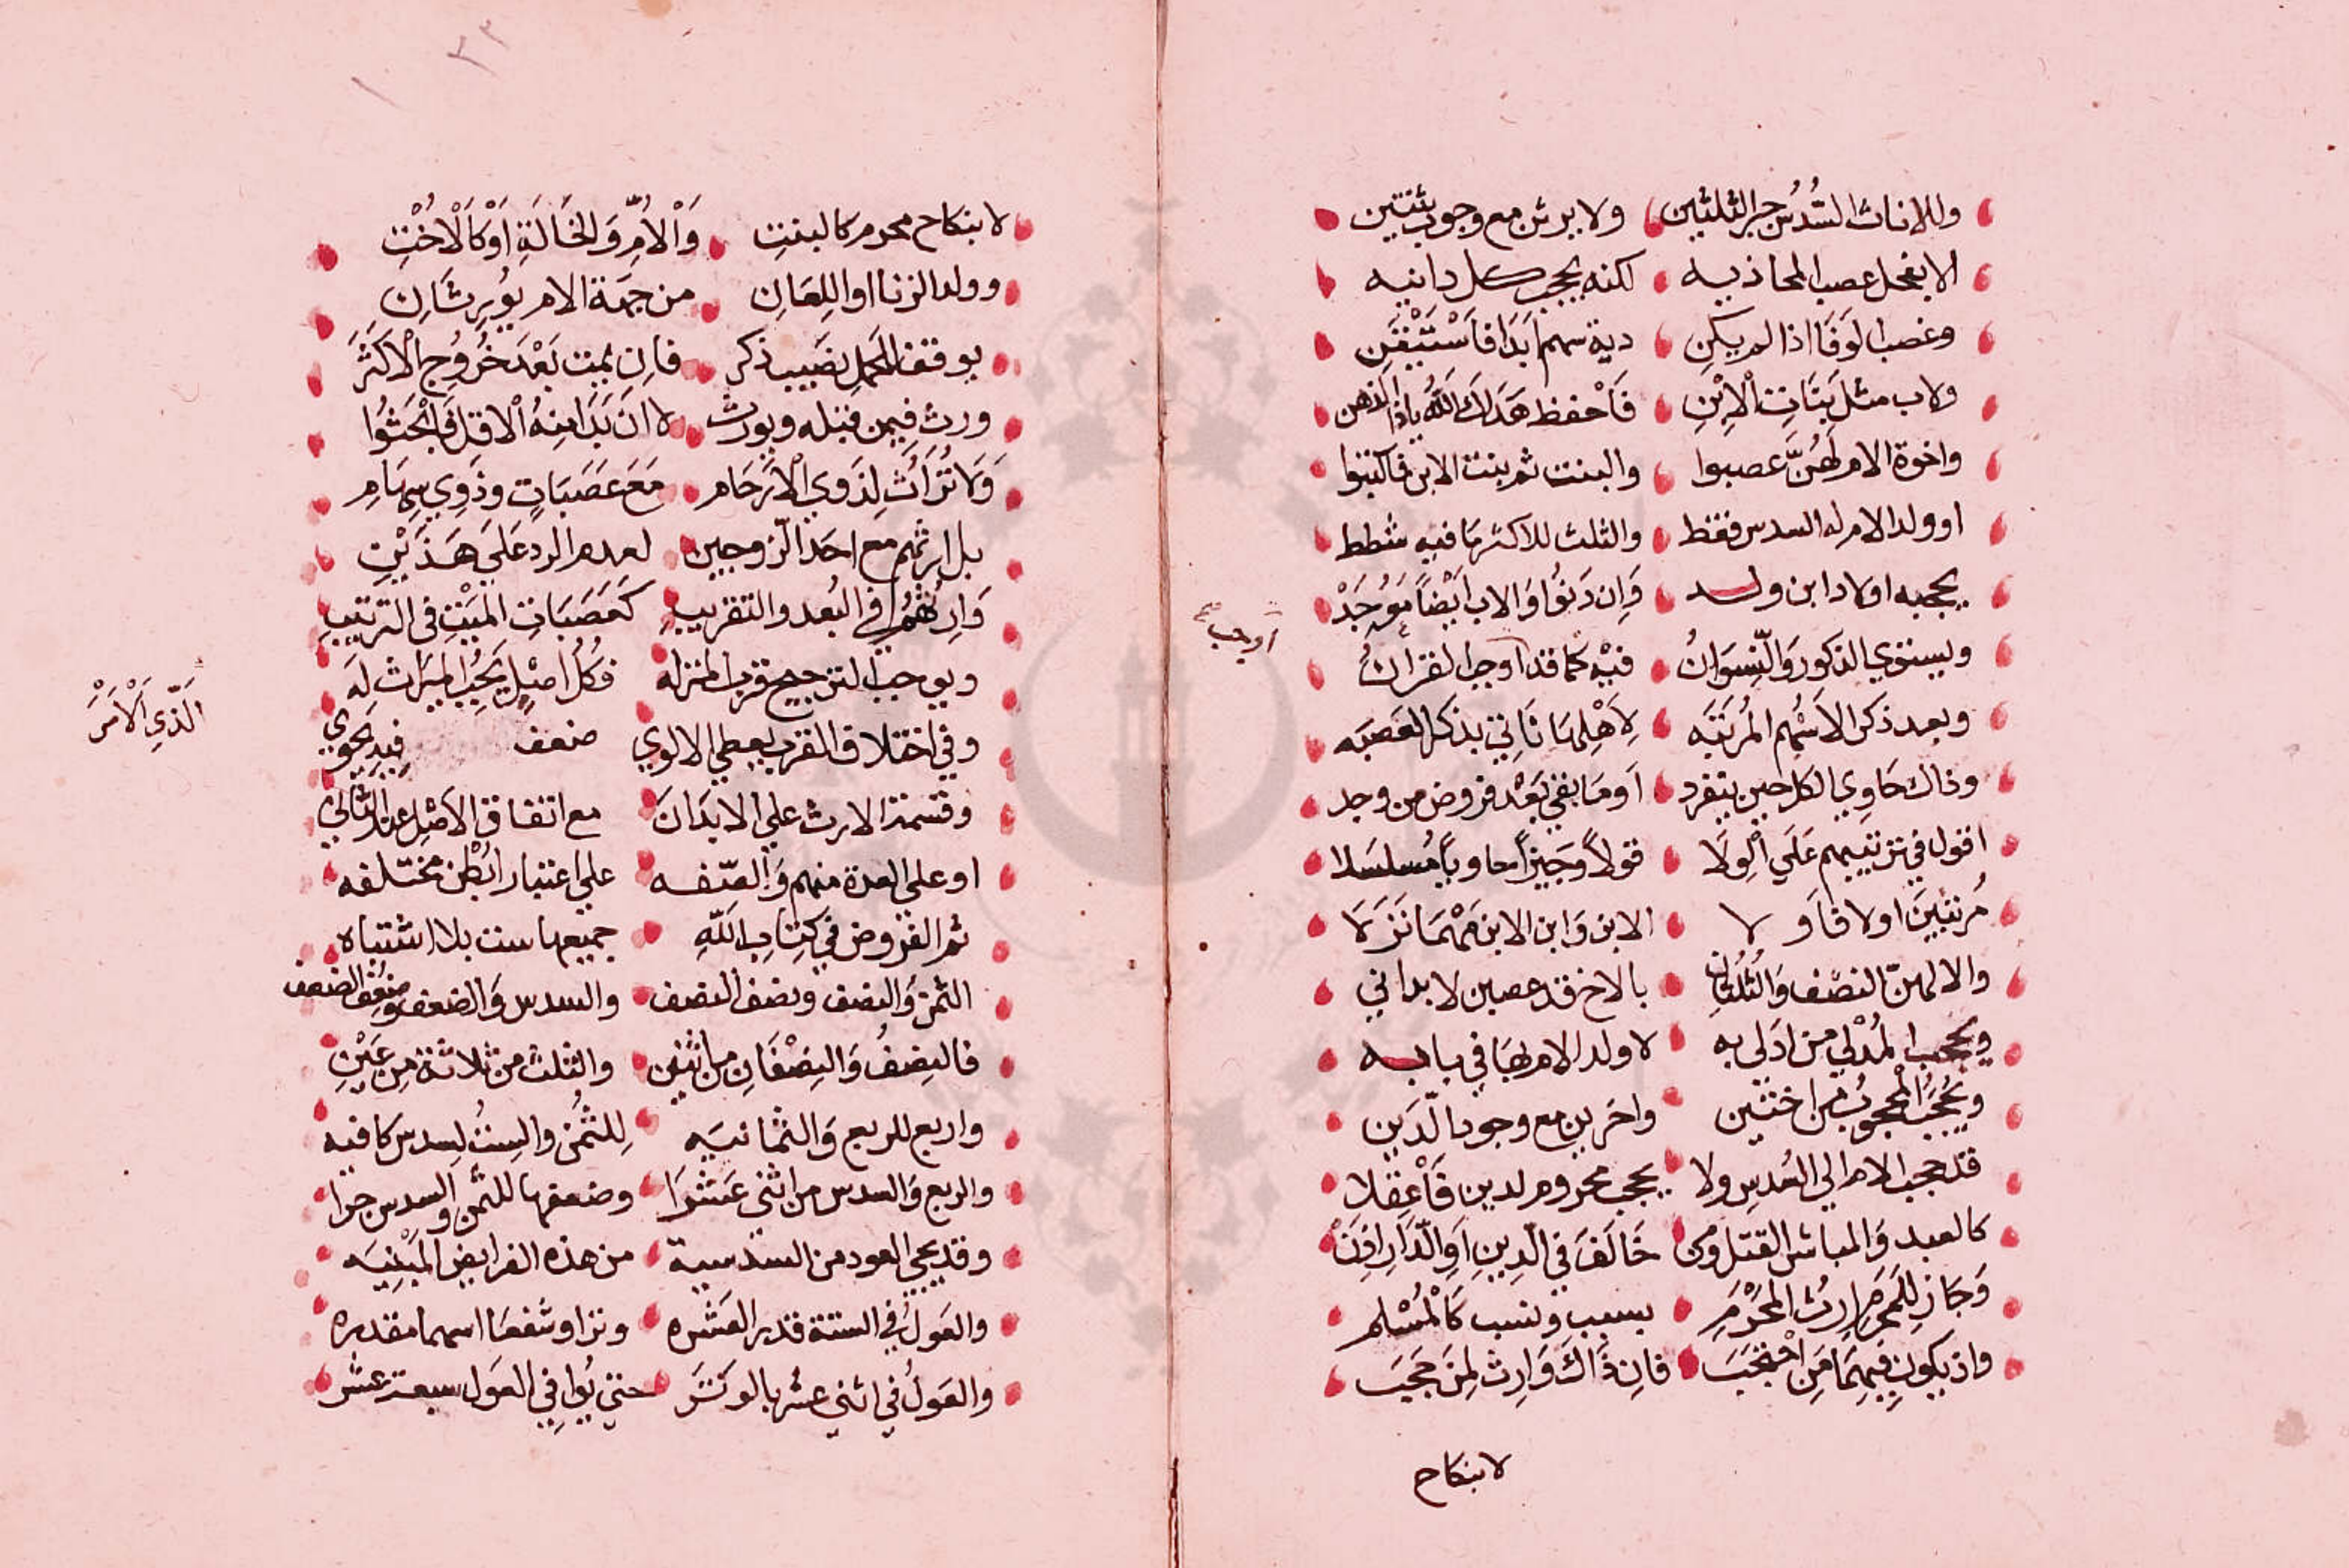 وللاناث السُّدُس جبر الثلثين ولا يرثن مع وجود ثنتين
الا بفحل عصب المحاذيه لكنه يحجب كل دانيه
وعصب لوفا اذا لم يكن ذية سهم ابدا فَاسْتَيْقَنِ
ولاب مثل بَنَاتِ الْاِبْنِ فَاحْفظ هَدَاكَ اللّٰهُ ياذا الذهن
واخوة الام لَهُنَّ عصبوا والبنت ثم بنت الابن فاكتبوا
او ولد الام له السدس فقط والثلث للاكثر ما فيه شطط
يحجبه اولاد ابن وولد وَاِن دَنَوْا وَالاب اَيْضًا
ويستوي الذكور وَالنِّسوَانُ فيْه كما قد اوجب القرانُ
اوجب صح
وبعد ذكر الاَسْهُم المُرَتَبَه لِاَهْلِهَا نَاتِي بذكر العَصَبَه
وذاك حَاوِي الكل حين ينفرد اَو مَا بقي بَعْد فروض من وجد
اقول في ترتيبهم عَلَي الْوِلَا قولاً وَجَيزاً حاوياً مُسلسَلا
مُرتبينَ اولا فَاَولا الابن وَابن الابن مَهْمَا نَزَلَا
والا لهن النصْف وَالثُلثان بالاخ قد عصبن لا بداني
ويحجب المُدْلي من اَدلى به لا ولد الام بهَا في بابه
ويُحجَبُ المحجوبُ من اختين واخرين مع وجود الَّدَين
قد حجب الام الي السُدسِ ولا يحجب محروم لدين فَاعْقِلا
كالعبد وَالمباشر القتل وَمن خَالَفَ في الدِينِ اَوِ الدَّارِ افْنْ
وَجَاز لِلمَحْرَمِ ارثُ المَحْرَمِ بسبب ونسب كَالْمُسْلم
واذ يكون فيهِمَا مَنِ احْتجَبَ فانِ ذَاكَ وَارث لِمَن حَجَبَ
لا بنكاح
لا بنكاح محرم كالبنت وَالْاُمِّ وَالخَالَةِ اَوْ كَالْاُخْتِ
وولد الزنا او اللِعَانِ من جهة الام يُورِثَانِ
يوقف للحَملِ نصَيب ذكر فاِن يمت بَعْدَ خُرُوجِ الْاكثَرَ
ورث فيمن قبله ويورث لا ان بَدَا مِنهُ الْاقل فَابْحَثُوا
وَلَا تُرَاثَ لِذَوي الْارَحَام مَعَ عَصَبَاتٍ وذَوِي سِهَام
بل ارثهم مع احَد الزوجين لعدم الرد عَلَي هَذَيْنِ
وَارثهُمُ في البُعد والتقريب كَعَصَبَاتِ المَيْتِ في الترتيب
ويوجب الترجيح قرب المنزله فكُلُ اَصْلٍ يَحجُبُ الميَراث لَه
وفي اختلاف القرب يعطي الابوي ضعف الَّذِي اَلْاُمُّ فِيهِ يحوي
وقسمة الارث علي الابدَانَ مع اتفاق الاَصْلِ
او علي العدة منهم وَالصّفه علي اعتبار ابْطُن مختلفه
ثم الفروض في كِتابِ اللّٰهِ جميعها ست بلا اشتباه
الثمن وَالنصف ونصف النصف والسدس وَالضعف وضِعْف الضعف
فالنِصْفُ وَالنِصْفَانِ من اثنين والثلث من ثلاثة مِن عَيْنِ
واربع للربع وَالثمانيَه لِلثُمْنِ والستُ لِسدس كافيه
والربع وَالسدس من اثني عَشرَا وضعفها للثمن وَالسدس جرا
وقد يجي العود من السدسية من هذه الفرايض المَبْنِيَه
والعَولُ في الستة قدر العَشره وترا وشفعَا اسهما مقدره
والعَولُ في اثني عشر بالوتر حتي يُوافي العَول سبعة عشر